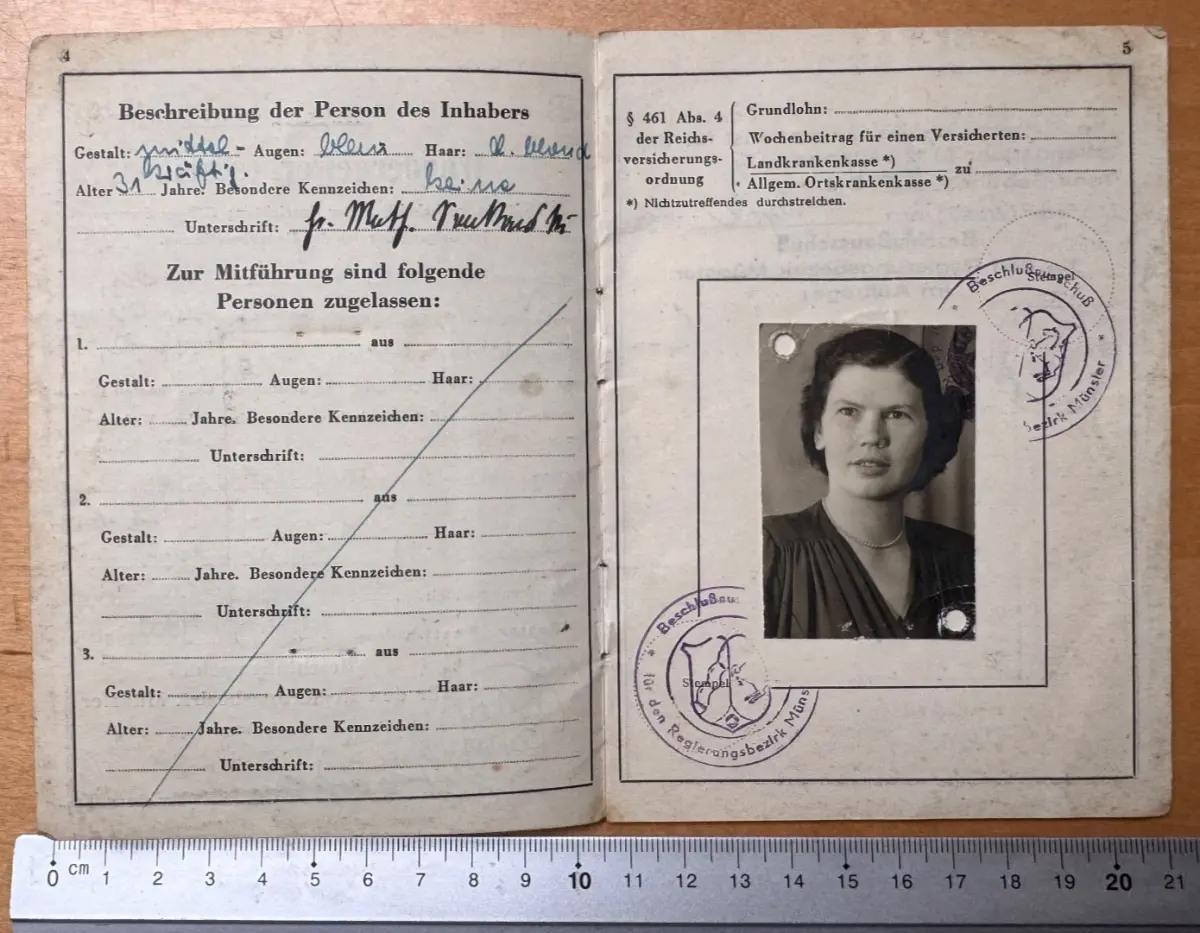 4
Beschreibung der Person des Inhabers
Gestalt: mittel - Augen: blau Haar: d. blond
kräftig.
Alter 31 Jahre. Besondere Kennzeichen: keine
Unterschrift: Fr. Math.
Zur Mitführung sind folgende
Personen zugelassen:
1. aus
Gestalt: Augen: Haar:
Alter: Jahre. Besondere Kennzeichen:
Unterschrift:
2. aus
Gestalt: Augen: Haar:
Alter: Jahre. Besondere Kennzeichen:
Unterschrift:
3. aus
Gestalt: Augen: Haar:
Alter: Jahre. Besondere Kennzeichen:
Unterschrift:
5
§ 461 Abs. 4
der Reichs-
versicherungs-
ordnung
Grundlohn:
Wochenbeitrag für einen Versicherten:
Landkrankenkasse *)
Allgem. Ortskrankenkasse *)
zu
*) Nichtzutreffendes durchstreichen.
Beschlußausschuß
Stempel
bezirk Münster
Beschlußau
Stempel
für den Regierungsbezirk Müns
0 cm 1 2 3 4 5 6 7 8 9 10 11 12 13 14 15 16 17 18 19 20 21